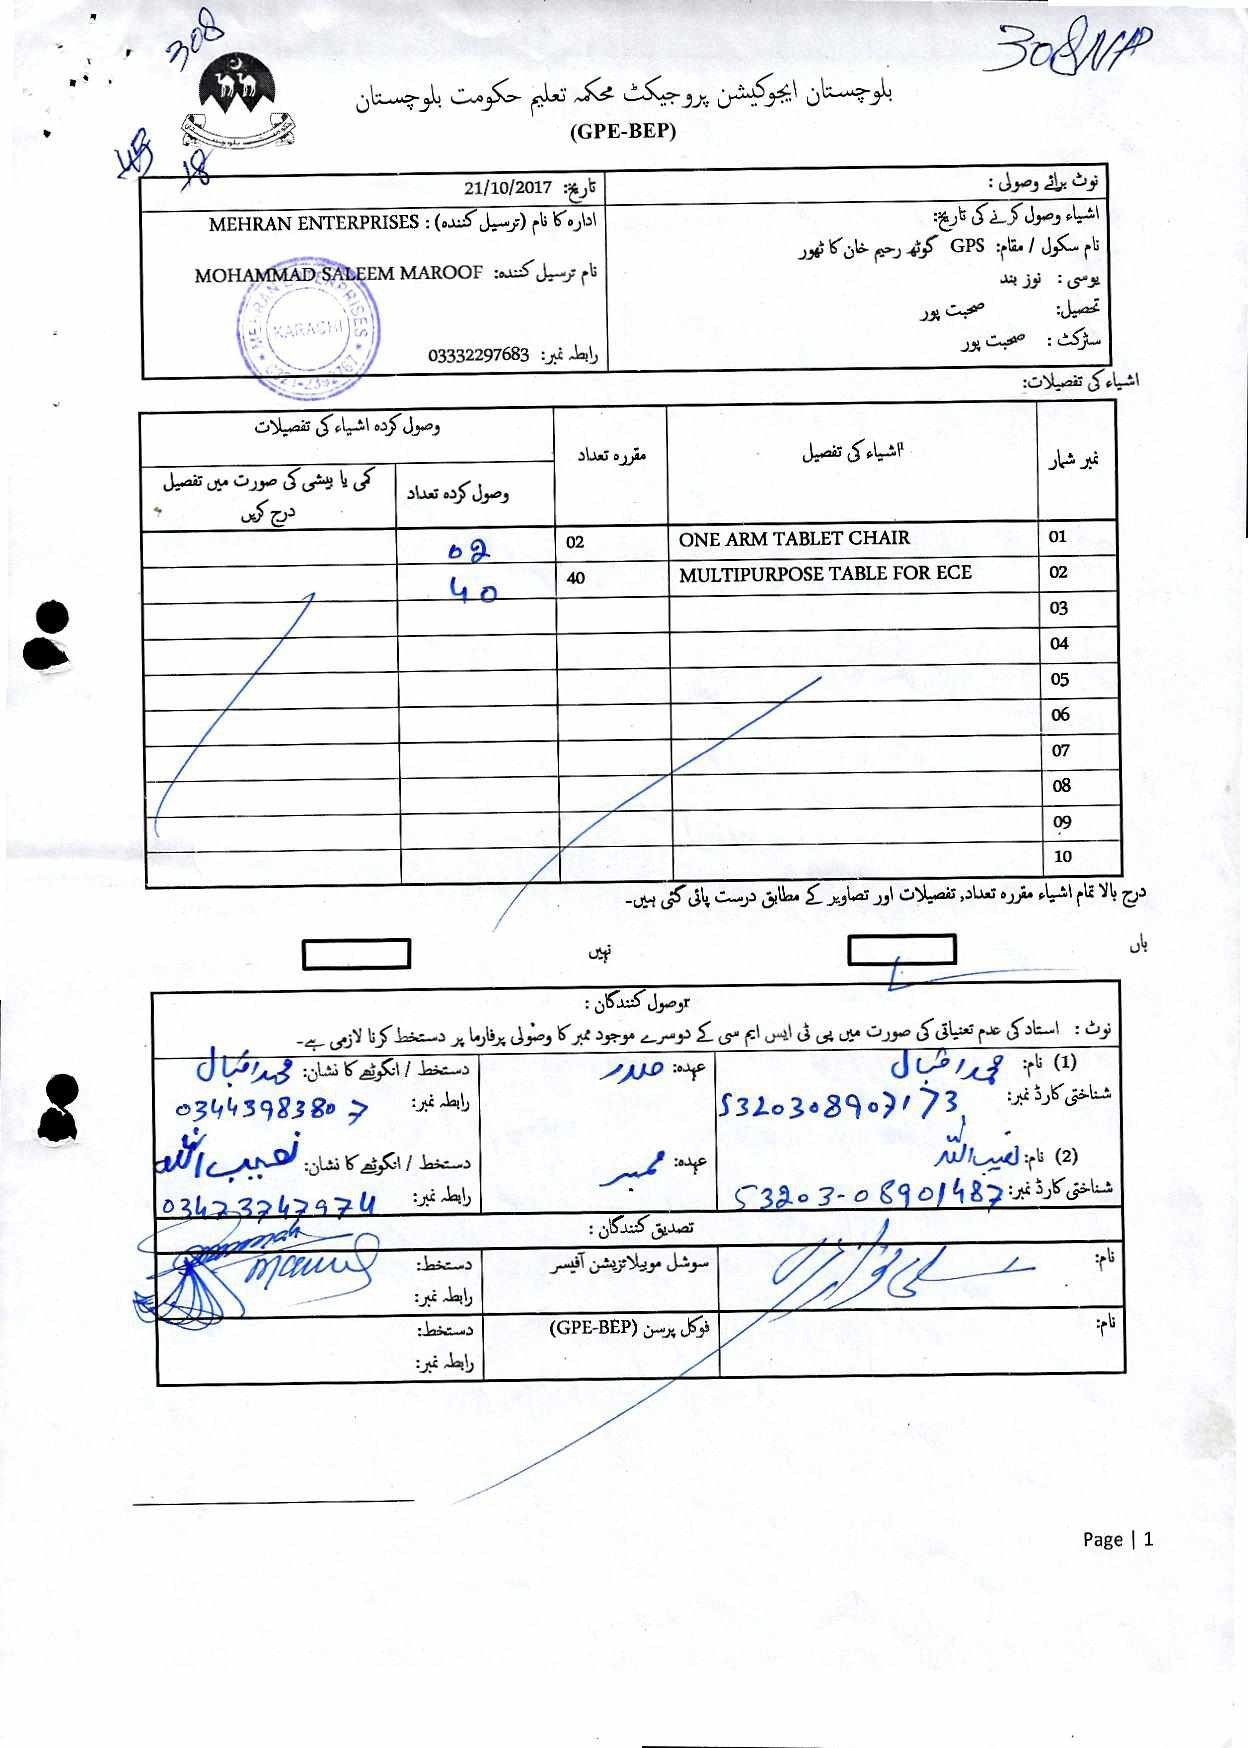 308
308 NAP
بلوچستان ایجوکیشن پروجیکٹ محکمہ تعلیم حکومت بلوچستان
(GPE-BEP)
18
نوٹ برائے وصولی :
تاریخ: 21/10/2017
اشیاء وصول کرنے کی تاریخ:
نام سکول / مقام: GPS گوٹھ رحیم خان کا ٹھور
یوسی : نوز بند
تحصیل: صحبت پور
سٹرکٹ : صحبت پور
ادارہ کا نام (ترسیل کنندہ) : MEHRAN ENTERPRISES
نام ترسیل کنندہ: MOHAMMAD SALEEM MAROOF
MEHRAN ENTERPRISES
KARACHI
رابطہ نمبر: 03332297683
اشیاء کی تفصیلات:
نمبر شمار اشیاء کی تفصیل مقررہ تعداد وصول کردہ اشیاء کی تفصیلات
وصول کردہ تعداد کمی یا بیشی کی صورت میں تفصیل درج کریں
01 ONE ARM TABLET CHAIR 02 02
02 MULTIPURPOSE TABLE FOR ECE 40 40
03
04
05
06
07
08
09
10
درج بالا تمام اشیاء مقررہ تعداد, تفصیلات اور تصاویر کے مطابق درست پائی گئی ہیں۔
ہاں نہیں
وصول کنندگان :
نوٹ : استاد کی عدم تعیناتی کی صورت میں پی ٹی ایس ایم سی کے دوسرے موجود ممبر کا وصُولی پرفارما پر دستخط کرنا لازمی ہے۔
(1) نام: محمد اقبال عہدہ: صدر دستخط / انگوٹھے کا نشان: محمد اقبال
شناختی کارڈ نمبر: 5320308907173 رابطہ نمبر: 03443983807
(2) نام: نصیب اللہ عہدہ: ممبر دستخط / انگوٹھے کا نشان: نصیب اللہ
شناختی کارڈ نمبر: 53203-08901487 رابطہ نمبر: 03423747974
تصدیق کنندگان :
نام: سوشل موبیلائزیشن آفیسر دستخط:
رابطہ نمبر:
نام: فوکل پرسن (GPE-BEP) دستخط:
رابطہ نمبر:
Page | 1